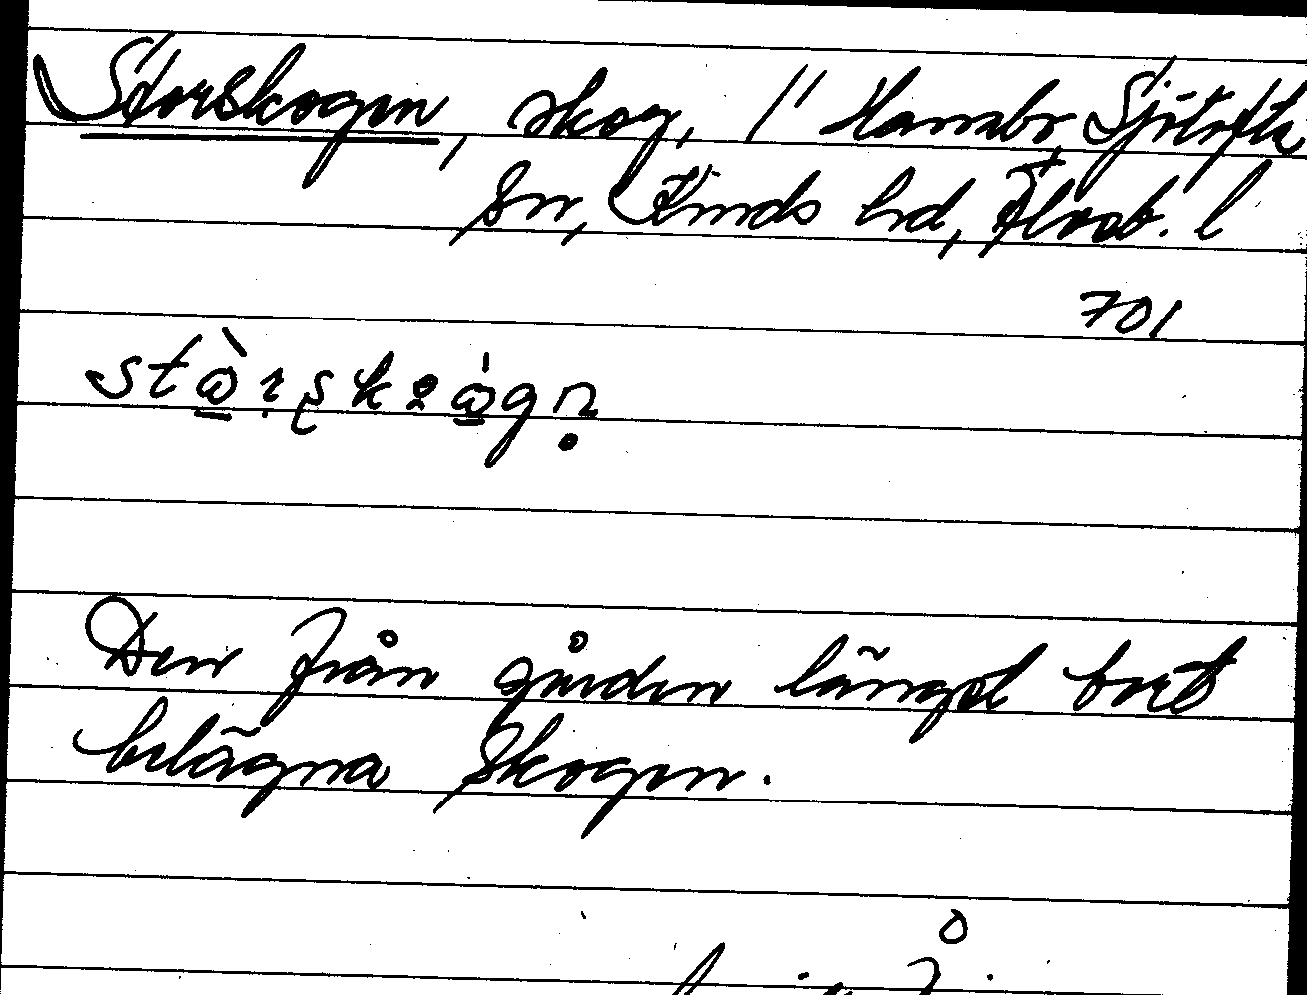 Storskogen, skog, 1/1 Hambo, Sjötofta
sn, Kinds hd, Älvsb. l
701
Den från gården längst bort
belägna skogen.